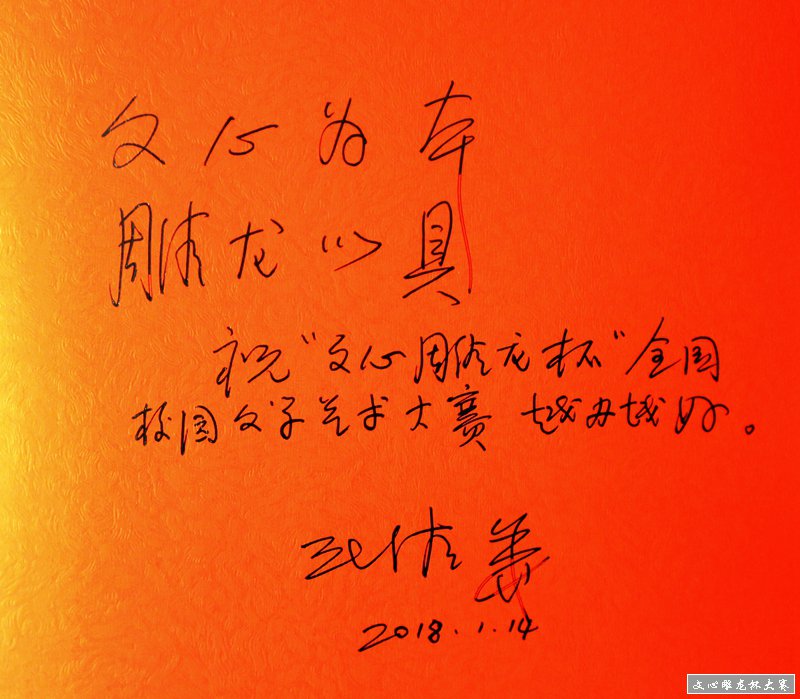 文心为本
雕龙以具
祝“文心雕龙杯”全国
校园文学艺术大赛 越办越好。
2018.1.14
文心雕龙杯大赛